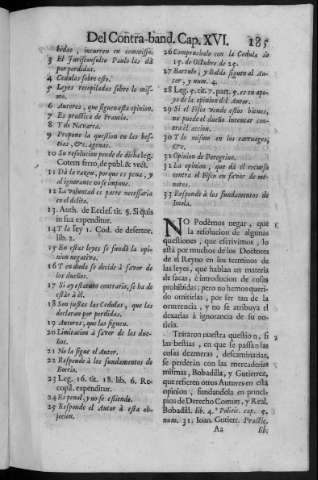 Del Contra-band. Cap. XVI. 185
bidas, incurren en commisso.
3 El Jurisconsulto Paulo las dà por perdidas.
4 Cedulas sobre esto.
5 Leyes recopiladas sobre lo mismo.
6 Autores, que siguen esta opinion.
7 Es practica de Francia.
8 Y de Navarra.
9 Propone la question en las bestias, &c. agenas.
10 Su resolucion pende de dicha leg. Cotem ferro, de publ. & vect.
11 Dà la razon, porque es pena, y al ignorante no se impone.
12 La voluntad es parte necessaria en el delito.
13 Auth. de Ecclesf. tit. §. Si quis in sua expenditur.
14 Y la ley 1. Cod. de desertor. lib. 2.
15 En estas leyes se fundò la opinion negativa.
16 Y en duda se decide à favor de los dueños.
17 Si ay estatuto contrario, se ha de estàr à èl.
18 Son justas las Cedulas, que las declaran por perdidas.
19 Autores, que las siguen.
20 Limitacion à favor de los dueños.
21 No la sigue el Autor.
22 Responde à los fundamentos de
23 Leg. 16. tit. 18. lib. 6. Recopil. expenditur.
24 Es penal, y no se estiende.
25 Responde el Autor à esta objecion.
26 Compruebalo con la Cedula de 15. de Octubre de 25.
27 Bartulo, y Baldo siguen al Autor, y num. 4.
28 Leg. 5. tit. 7. part. 5. es en apoyo de la opinion del Autor.
29 Si el Fisco vende estos bienes, no puede el dueño intentar contra èl accion.
30 Y lo mismo en los carruages, &c.
31 Opinion de Peregrino.
32 La opinion, que dà el recurso contra el Fisco en favor de menores.
33 Responde à los fundamentos de
NO Podèmos negar, que la resolucion de algunas questiones, que escrivimos, lo està por muchos de los Doctores de el Reyno en los terminos de las leyes, que hablan en materia de sacas, è introduccion de cosas prohibidas; pero no hemos querido omitirlas, por ser tan de la ocurrencia, y no se atribuya el dexarlas à ignorancia de su noticia.
Trataron nuestra question, si las bestias, en que se passan las cosas dezmeras, descaminadas, se perderàn con las mercaderias mismas, Bobadilla, y Gutierrez, que refieren otros Autores en esta opinion; fundandola en principios de Derecho Comun, y Real, Bobadil. lib. 4. Politic. cap. 5. num. 31. Joan. Gutierr. Practic.
Aa lib.